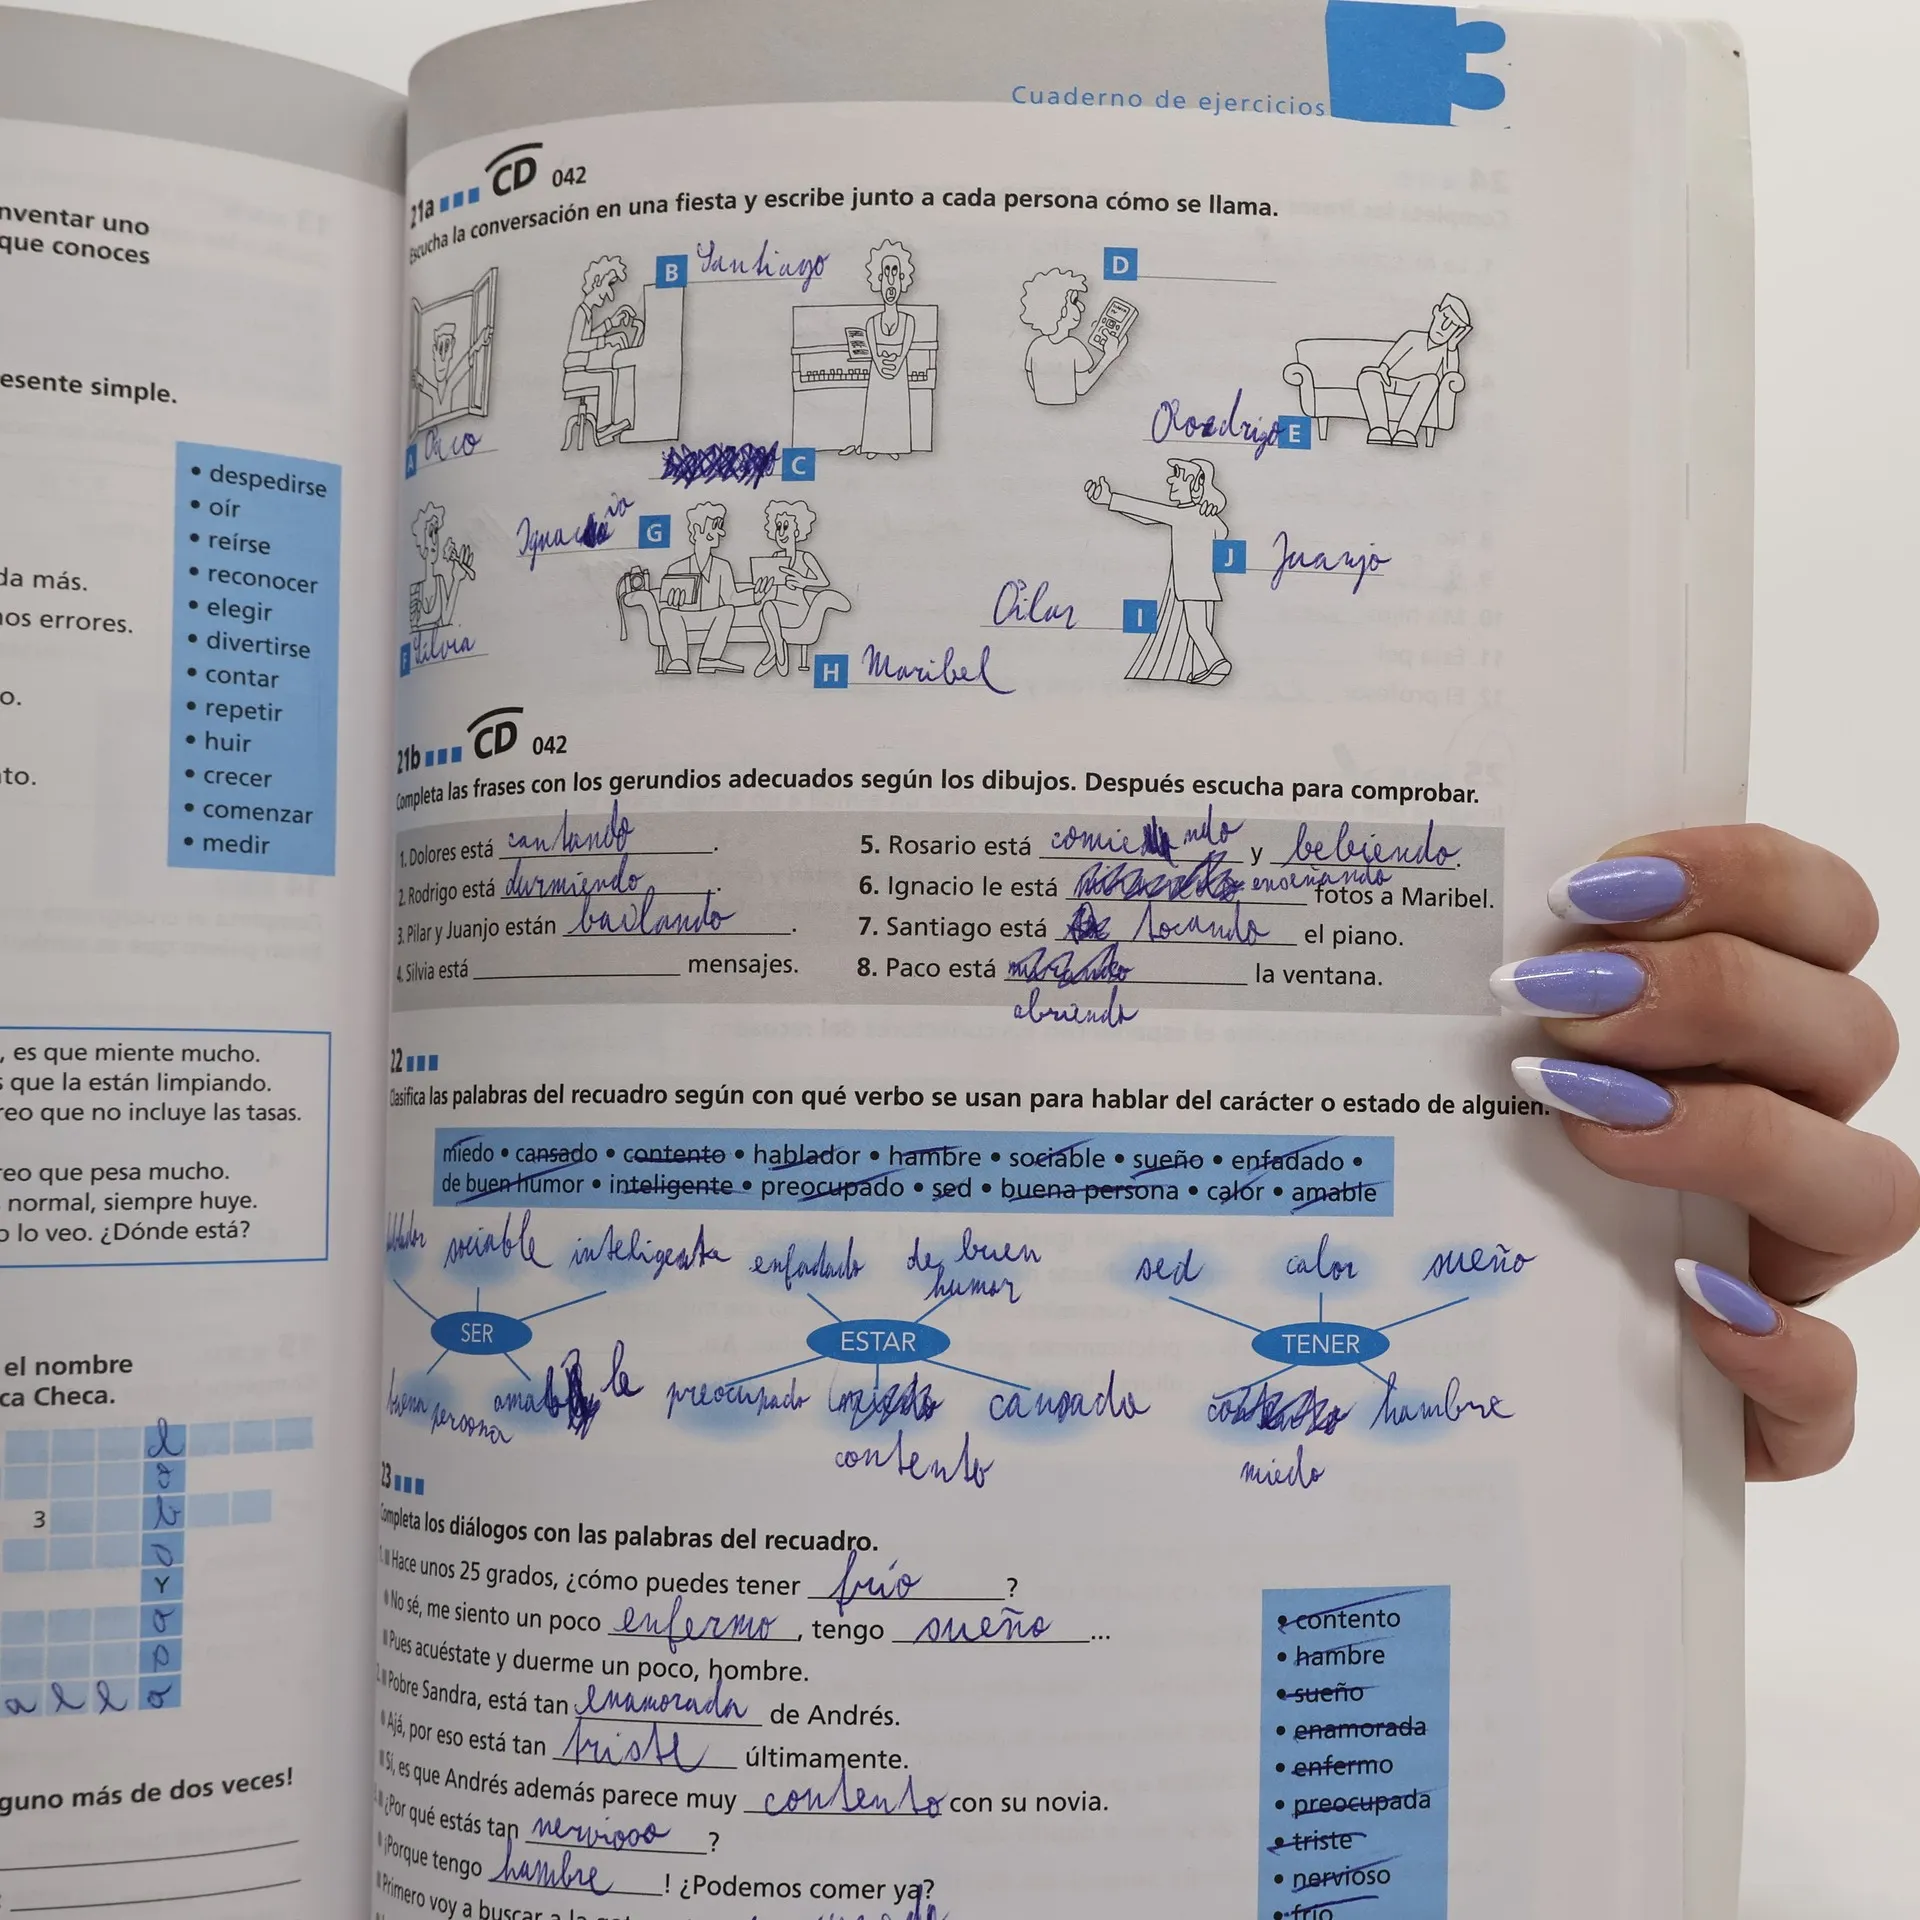 nventar uno
que conoces
esente simple.
• despedirse
• oír
• reírse
• reconocer
• elegir
• divertirse
• contar
• repetir
• huir
• crecer
• comenzar
• medir
da más.
nos errores.
o.
to.
, es que miente mucho.
s que la están limpiando.
reo que no incluye las tasas.
reo que pesa mucho.
normal, siempre huye.
o lo veo. ¿Dónde está?
el nombre
ca Checa.
3
Y
a l l o
guno más de dos veces!
Cuaderno de ejercicios
21a CD 042
Escucha la conversación en una fiesta y escribe junto a cada persona cómo se llama.
B Santiago
D
A Paco
C
Rodrigo E
Ignacio G
J Juanjo
Pilar I
F Silvia
H Maribel
21b CD 042
Completa las frases con los gerundios adecuados según los dibujos. Después escucha para comprobar.
1. Dolores está cantando.
2. Rodrigo está durmiendo.
3. Pilar y Juanjo están bailando.
4. Silvia está mensajes.
5. Rosario está comiendo y bebiendo.
6. Ignacio le está enseñando fotos a Maribel.
7. Santiago está tocando el piano.
8. Paco está la ventana.
abriendo
22
Clasifica las palabras del recuadro según con qué verbo se usan para hablar del carácter o estado de alguien.
miedo • cansado • contento • hablador • hambre • sociable • sueño • enfadado •
de buen humor • inteligente • preocupado • sed • buena persona • calor • amable
hablador sociable inteligente enfadado de buen humor sed calor sueño
SER ESTAR TENER
buena persona amable preocupado cansado hambre
contento miedo
23
Completa los diálogos con las palabras del recuadro.
1. Hace unos 25 grados, ¿cómo puedes tener frío ?
No sé, me siento un poco enfermo, tengo sueño...
Pues acuéstate y duerme un poco, hombre.
2. Pobre Sandra, está tan enamorada de Andrés.
Ajá, por eso está tan triste últimamente.
Sí, es que Andrés además parece muy contento con su novia.
¿Por qué estás tan nervioso ?
¡Porque tengo hambre ! ¿Podemos comer ya?
Primero voy a buscar a la
• contento
• hambre
• sueño
• enamorada
• enfermo
• preocupada
• triste
• nervioso
• frío